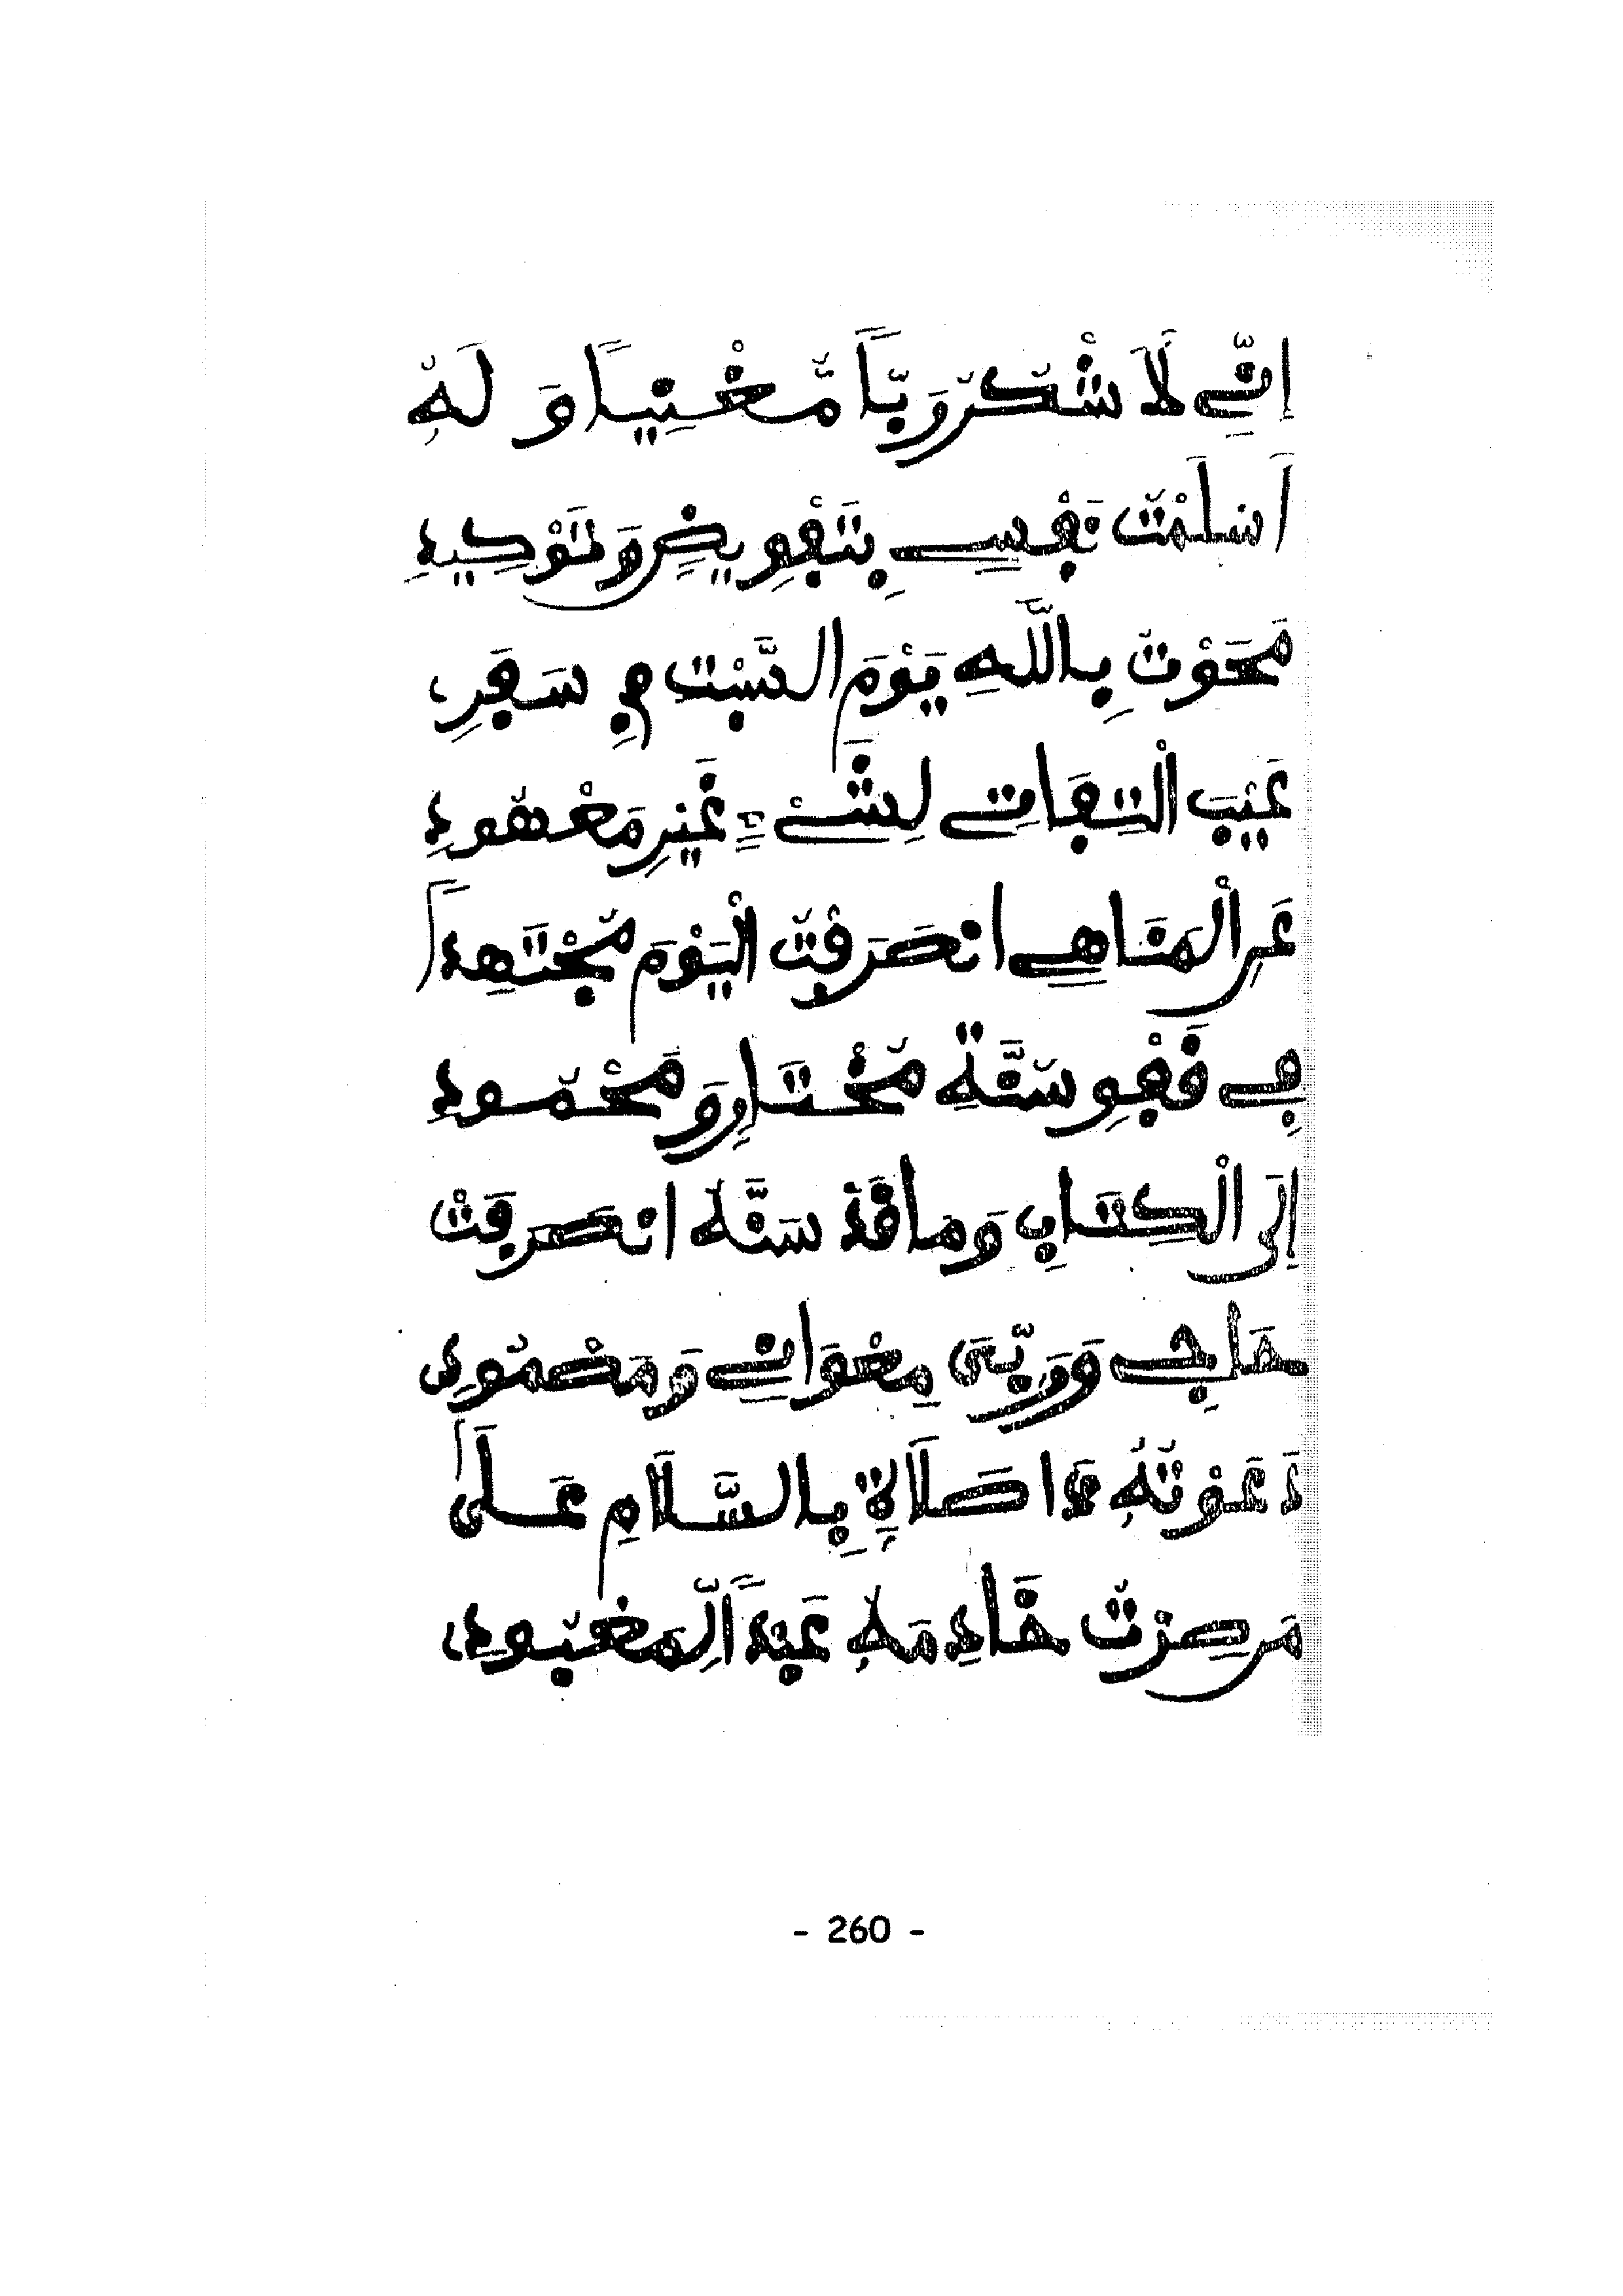 إِنِّي لَأَشْكُرُ رَبّاً مُّغْنِياً وَلَهُ
أَسْلَمْتُ نَفْسِي بِتَفْوِيضٍ وَتَوْكِيدِ
مَحَوْتُ بِاللَّهِ يَوْمَ السَّبْتِ فِي سَفَرِ
عَيْبَ الْتِفَاتِي لِشَيْءٍ غَيْرِ مَعْهُودِ
عَنِ الْمَنَاهِي انْصَرَفْتُ الْيَوْمَ مُجْتَهِداً
فِي قَفْوِ سُنَّةِ مُخْتَارٍ وَمَحْمُودِ
إِلَى الْكِتَابِ وَمَا قَدْ سَنَّهُ انْصَرَفَتْ
حَاجِي وَرَبِّيَ مِعْوَانِي وَمَصْمُودِي
دَعَوْتُهُ ذَا صَلَاةٍ بِالسَّلَامِ عَلَى
مَن صِرْتُ خَادِمَهُ عَبْداً لِّمَعْبُودِ
- 260 -